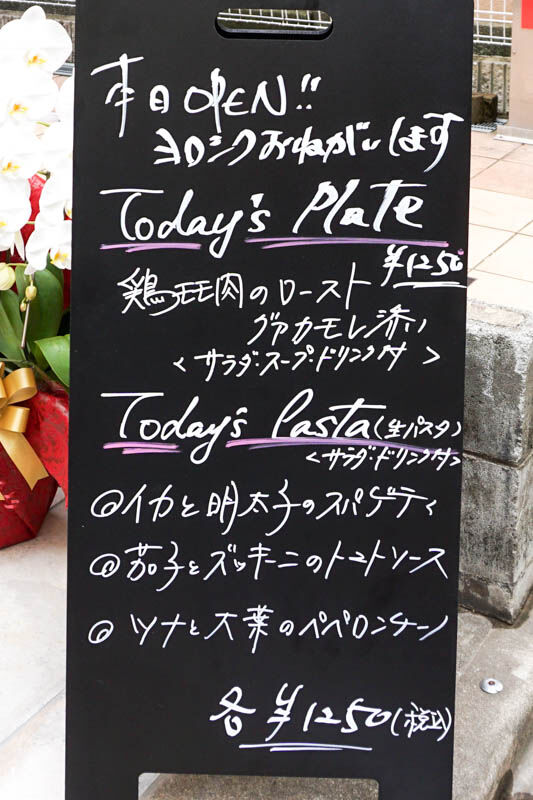 本日OPEN!!
ヨロシクおねがいします
Today's Plate
¥1250
鶏モモ肉のロースト
グァカモレ添い
<サラダ・スープ・ドリンク付>
Today's Pasta(生パスタ)
<サラダ・ドリンク付>
@イカと明太子のスパゲティ
@茄子とズッキーニのトマトソース
@ツナと大葉のペペロンチーノ
各¥1250(税込)